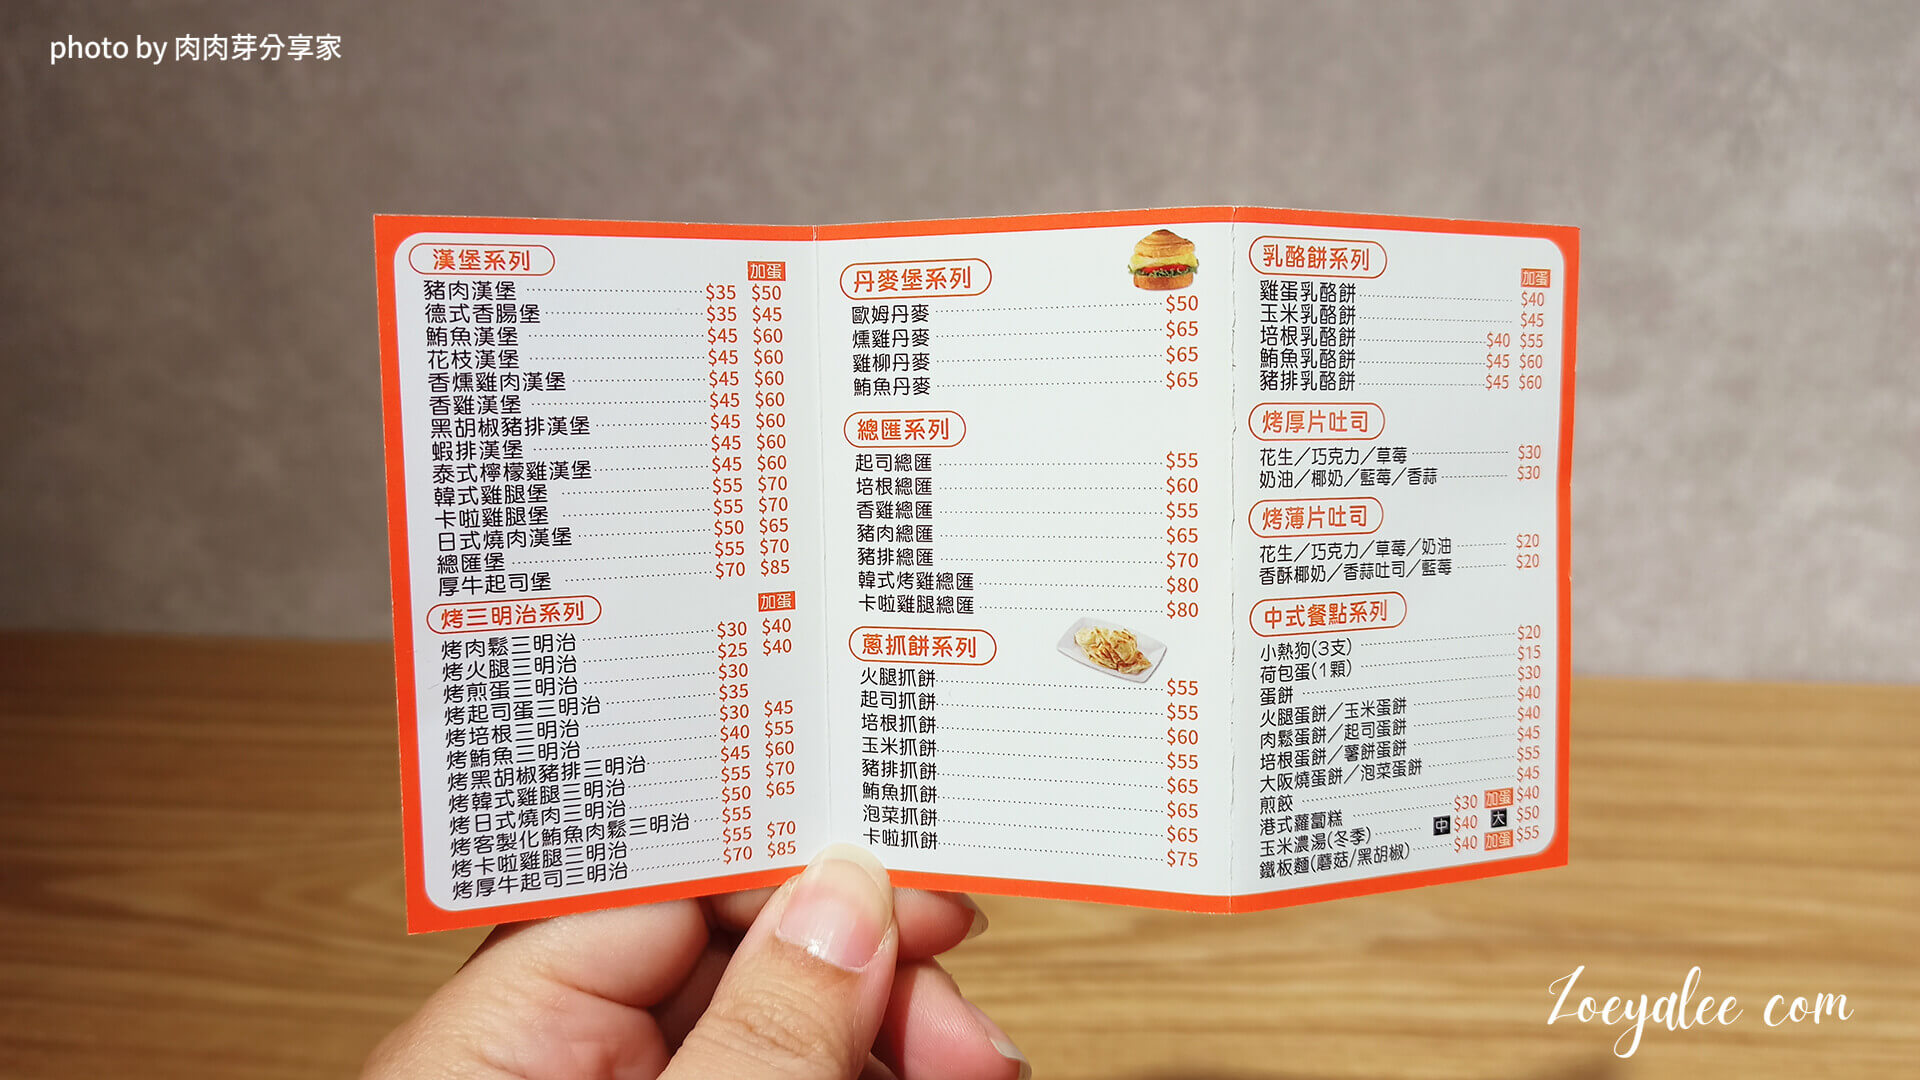 photo by 肉肉芽分享家
漢堡系列
加蛋
豬肉漢堡 $35 $50
德式香腸堡 $35 $45
鮪魚漢堡 $45 $60
花枝漢堡 $45 $60
香燻雞肉漢堡 $45 $60
香雞漢堡 $45 $60
黑胡椒豬排漢堡 $45 $60
蝦排漢堡 $45 $60
泰式檸檬雞漢堡 $45 $60
韓式雞腿堡 $55 $70
卡啦雞腿堡 $55 $70
日式燒肉漢堡 $50 $65
總匯堡 $55 $70
厚牛起司堡 $70 $85
烤三明治系列
加蛋
烤肉鬆三明治 $30 $40
烤火腿三明治 $25 $40
烤煎蛋三明治 $30
烤起司蛋三明治 $35
烤培根三明治 $30 $45
烤鮪魚三明治 $40 $55
烤黑胡椒豬排三明治 $45 $60
烤韓式雞腿三明治 $55 $70
烤日式燒肉三明治 $50 $65
烤客製化鮪魚肉鬆三明治 $55
烤卡啦雞腿三明治 $55 $70
烤厚牛起司三明治 $70 $85
丹麥堡系列
歐姆丹麥 $50
燻雞丹麥 $65
雞柳丹麥 $65
鮪魚丹麥 $65
總匯系列
起司總匯 $55
培根總匯 $60
香雞總匯 $55
豬肉總匯 $65
豬排總匯 $70
韓式烤雞總匯 $80
卡啦雞腿總匯 $80
蔥抓餅系列
火腿抓餅 $55
起司抓餅 $55
培根抓餅 $60
玉米抓餅 $55
豬排抓餅 $65
鮪魚抓餅 $65
泡菜抓餅 $65
卡啦抓餅 $75
乳酪餅系列
加蛋
雞蛋乳酪餅 $40
玉米乳酪餅 $45
培根乳酪餅 $40 $55
鮪魚乳酪餅 $45 $60
豬排乳酪餅 $45 $60
烤厚片吐司
花生／巧克力／草莓 $30
奶油／椰奶／藍莓／香蒜 $30
烤薄片吐司
花生／巧克力／草莓／奶油 $20
香酥椰奶／香蒜吐司／藍莓 $20
中式餐點系列
小熱狗(3支) $20
荷包蛋(1顆) $15
蛋餅 $30
火腿蛋餅／玉米蛋餅 $40
肉鬆蛋餅／起司蛋餅 $40
培根蛋餅／薯餅蛋餅 $45
大阪燒蛋餅／泡菜蛋餅 $55
煎餃 $45
港式蘿蔔糕 $30 加蛋 $40
玉米濃湯(冬季) 中 $40 大 $50
鐵板麵(蘑菇/黑胡椒) $40 加蛋 $55
Zoeyalee com